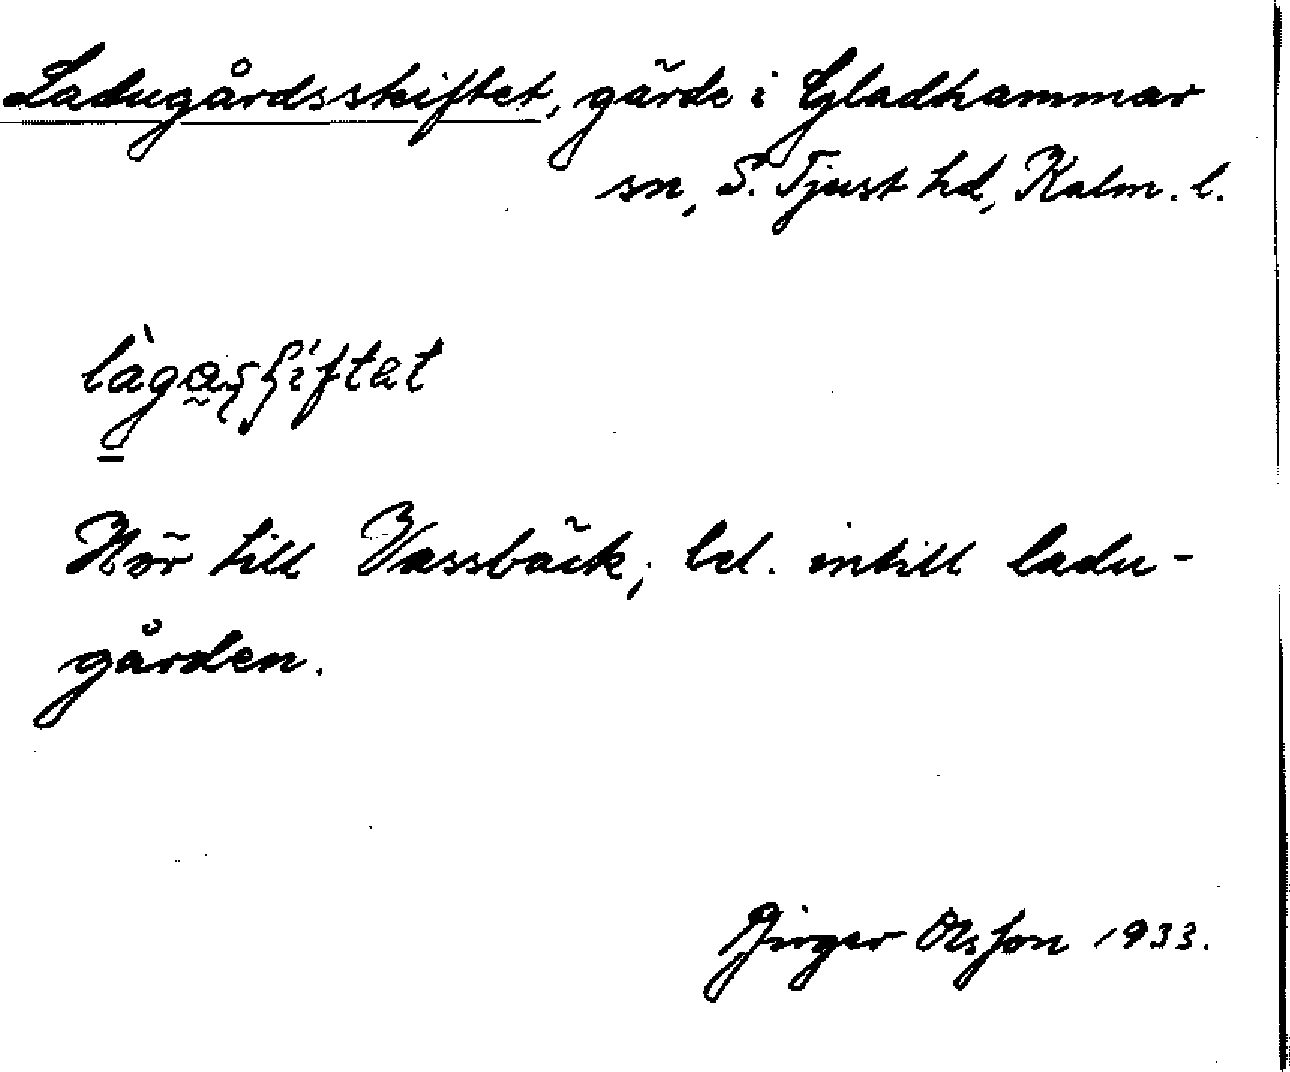 Ladugårdsskiftet, gärde i Gladhammar
sn, S. Tjust hd, Kalm. l.
Hör till Vassbäck; bel. intill ladu-
gården.
Birger Olsson 1933.